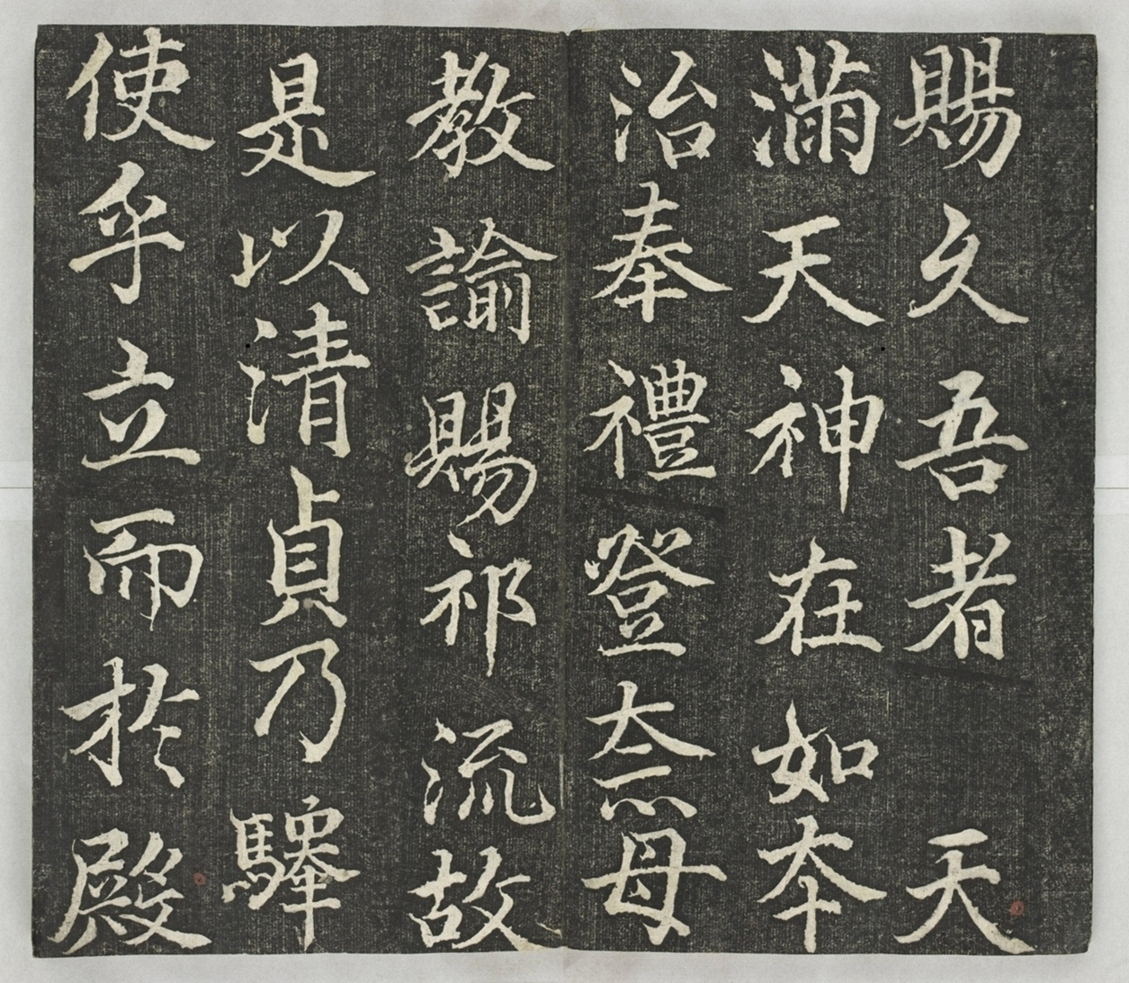 賜久吾者　天
滿天神在如本
治奉禮登奈母
教諭賜祁流故
是以清貞乃驛
使乎立而於殿